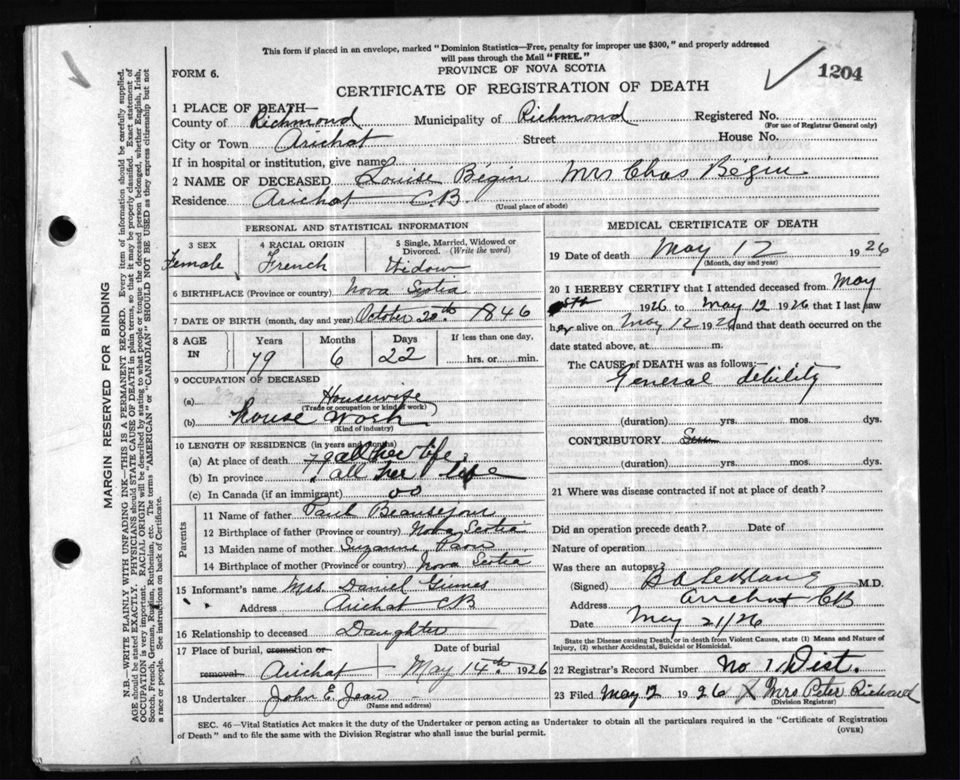 This form if placed in an envelope, marked "Dominion Statistics—Free, penalty for improper use $300," and properly addressed
will pass through the Mail "FREE."
FORM 6.
PROVINCE OF NOVA SCOTIA
1204
CERTIFICATE OF REGISTRATION OF DEATH
1 PLACE OF DEATH—
County of Richmond Municipality of Richmond Registered No.
(For use of Registrar General only)
City or Town Arichat Street House No.
If in hospital or institution, give name
2 NAME OF DECEASED Louise Bégin Mrs Chas Bégin
Residence Arichat C.B.
(Usual place of abode)
PERSONAL AND STATISTICAL INFORMATION
3 SEX 4 RACIAL ORIGIN 5 Single, Married, Widowed or
Divorced. (Write the word)
Female French Widow
6 BIRTHPLACE (Province or country) Nova Scotia
7 DATE OF BIRTH (month, day and year) October 20th 1846
8 AGE IN Years Months Days If less than one day,
79 6 22 hrs. or min.
9 OCCUPATION OF DECEASED
(a) Housewife
(Trade or occupation or kind of work)
(b) house work
(Kind of industry)
10 LENGTH OF RESIDENCE (in years and months)
(a) At place of death 79 all her life
(b) In province all her life
(c) In Canada (if an immigrant) 00
Parents
11 Name of father Paul
12 Birthplace of father (Province or country) Nova Scotia
13 Maiden name of mother Suzanne
14 Birthplace of mother (Province or country) Nova Scotia
15 Informant's name Mrs. Daniel
Address Arichat CB
16 Relationship to deceased Daughter
17 Place of burial, cremation or Date of burial
removal Arichat May 14th. 1926
18 Undertaker John E. Jean
(Name and address)
MEDICAL CERTIFICATE OF DEATH
19 Date of death May 12 1926
(Month, day and year)
20 I HEREBY CERTIFY that I attended deceased from May
1926 to May 12 1926 that I last saw
her alive on May 12 1926 and that death occurred on the
date stated above, at m.
The CAUSE of DEATH was as follows:—
General debility
(duration) yrs. mos. dys.
CONTRIBUTORY
(duration) yrs. mos. dys.
21 Where was disease contracted if not at place of death?
Did an operation precede death? Date of
Nature of operation
Was there an autopsy?
(Signed) B A LeBlanc M.D.
Address Arichat CB
Date May 21/26
State the Disease causing Death, or in death from Violent Causes, state (1) Means and Nature of
Injury, (2) whether Accidental, Suicidal or Homicidal.
22 Registrar's Record Number No 1 Dist.
23 Filed May 2 1926 Mrs Peter Richard
(Division Registrar)
SEC. 46—Vital Statistics Act makes it the duty of the Undertaker or person acting as Undertaker to obtain all the particulars required in the "Certificate of Registration
of Death" and to file the same with the Division Registrar who shall issue the burial permit.
(OVER)
MARGIN RESERVED FOR BINDING
N.B.—WRITE PLAINLY WITH UNFADING INK—THIS IS A PERMANENT RECORD. Every item of information should be carefully supplied.
AGE should be stated EXACTLY. PHYSICIANS should STATE CAUSE OF DEATH in plain terms, so that it may be properly classified. Exact statement of
OCCUPATION is very important. RACIAL ORIGIN will be described by stating to what people or tongue the deceased person belonged, whether English, Irish,
Scotch, French, German, Russian, Ruthenian, etc. The terms "AMERICAN" or "CANADIAN" SHOULD NOT BE USED as they express citizenship but not
a race or people. See instructions on back of Certificate.